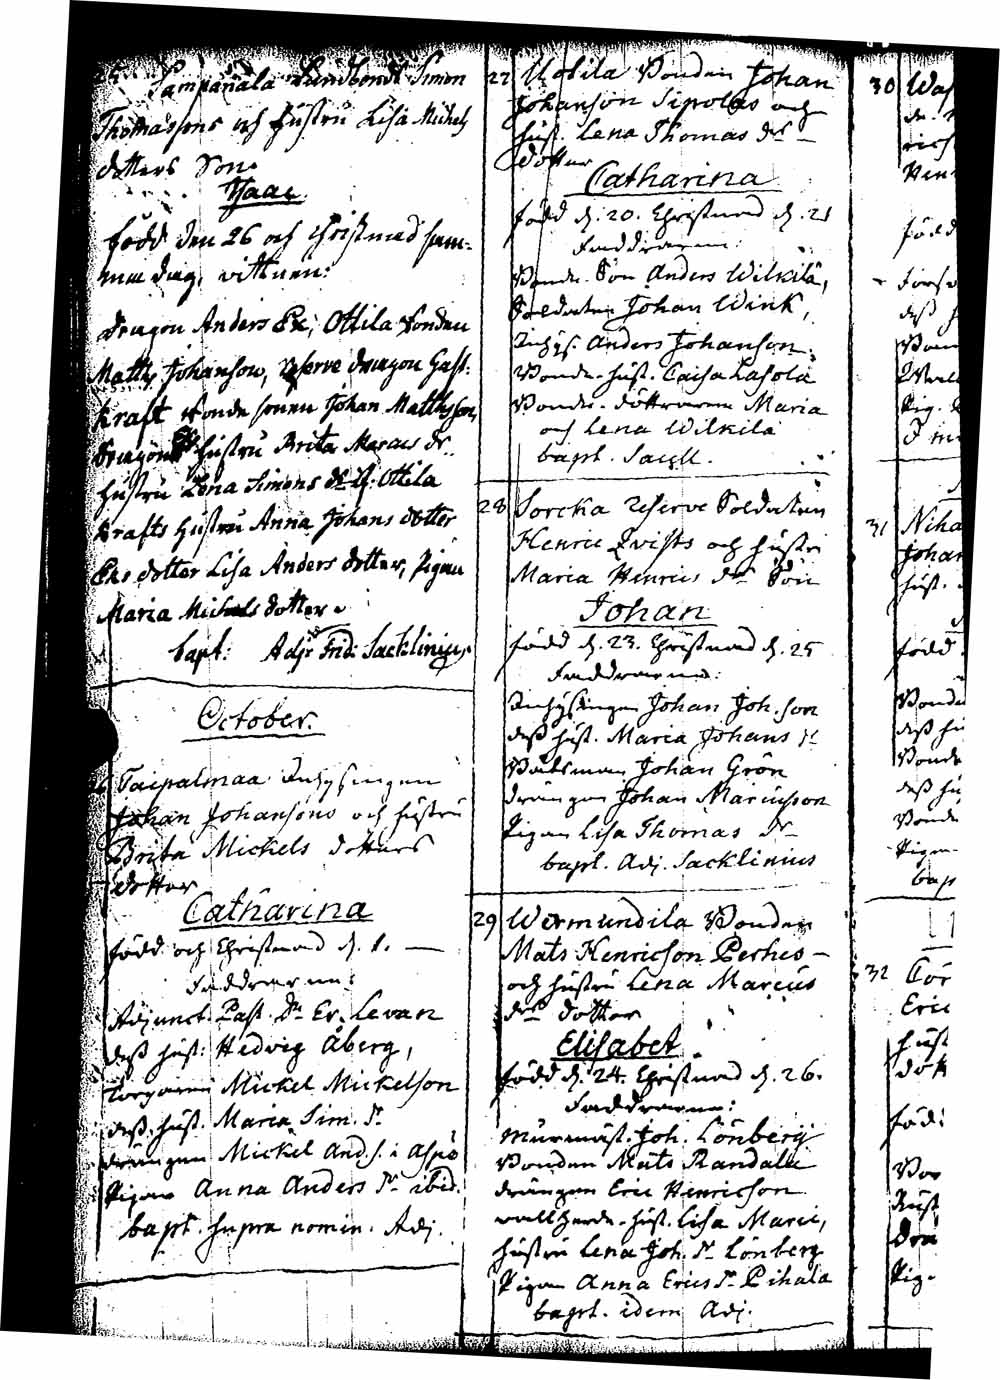 Sampanala Landbond Simon
Thomassons och hustru Lisa Michels
dotters Son
Isaac
född den 26 och Christnad sam-
ma dag, vittnen:
dragon Anders Ek, Ottila bonden
Matts Johanson, reserve dragon Gust:
Kraft bonde sonen Johan Mattsson,
dragons hustru Brita Marcus dr.
hustru Lena Simons dr Ottila
Krafts hustru Anna Johans dotter
Eks dotter Lisa Anders dotter, Pigan
Maria Michels dotter
bapt: Adj: Frid: Sacklinius.
October.
Taipalmaa Inhysingen
Johan Johansons och hustru
Brita Mickels dotters
dotter
Catharina
född och Christnad d. 1.
Faddrarne:
Adjunct. Past. Dn Er. Levan
dess hust: Hedvig Åberg,
Torparen Mickel Mickelson
dess hust. Maria Sim. dr
drängen Mickel And. s. i Aspö
Pigan Anna Anders dr ibid.
bapt. supra nomin. Adj.
27 Uotila Bonden Johan
Johanson Sipolas och
hust. Lena Thomas drs
dotter
Catharina
född d. 20. Christnad d. 21
Faddrarne:
Bonde Son Anders Wilkilä,
Soldaten Johan Wink,
Inhys. Anders Johanson.
Bonde-hust. Caisa Lasola
Bonde-döttrarne Maria
och Lena Wilkilä
bapt. Sackl.
28 Sorcka reserve Soldaten
Henric Qvists och hustru
Maria Henrics drs Son
Johan
född d. 23. Christnad d. 25
Faddrarne:
Inhysingen Johan Joh. son
dess hust. Maria Johans dr
Båtsman Johan Grön
drängen Johan Marcusson
Pigan Lisa Thomas dr
bapt. Adj. Sacklinius
29 Wermundila Bonden
Mats Henricson Perhes
och hustru Lena Marcus
drs dotter
Elisabet
född d. 24. Christnad d. 26.
Faddrarne:
Murmäst. Joh. Lönberg
Bonden Mats Randala
drängen Eric Henricson
hust. Lisa Marie,
hustru Lena Joh. dr Lönberg
Pigan Anna Erics dr Pihala
bapt. idem Adj.
30
född
31 Niha
Johan
hust.
född
Bonde
dess hu
Bonde
dess hu
Bonde
Pigan
bap
32
Eric
hust
född
Pig.